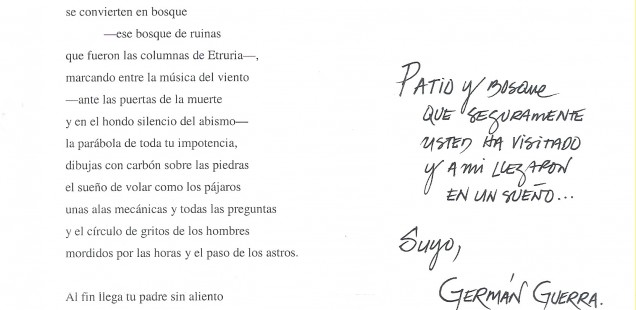 se convierten en bosque
—ese bosque de ruinas
que fueron las columnas de Etruria—,
marcando entre la música del viento
—ante las puertas de la muerte
y en el hondo silencio del abismo—
la parábola de toda tu impotencia,
dibujas con carbón sobre las piedras
el sueño de volar como los pájaros
unas alas mecánicas y todas las preguntas
y el círculo de gritos de los hombres
mordidos por las horas y el paso de los astros.
Al fin llega tu padre sin aliento
PATIO y BOSQUE
QUE SEGURAMENTE
USTED HA VISITADO
y A MI LLEGARON
EN UN SUEÑO...
Suyo,
GERMÁN GUERRA.